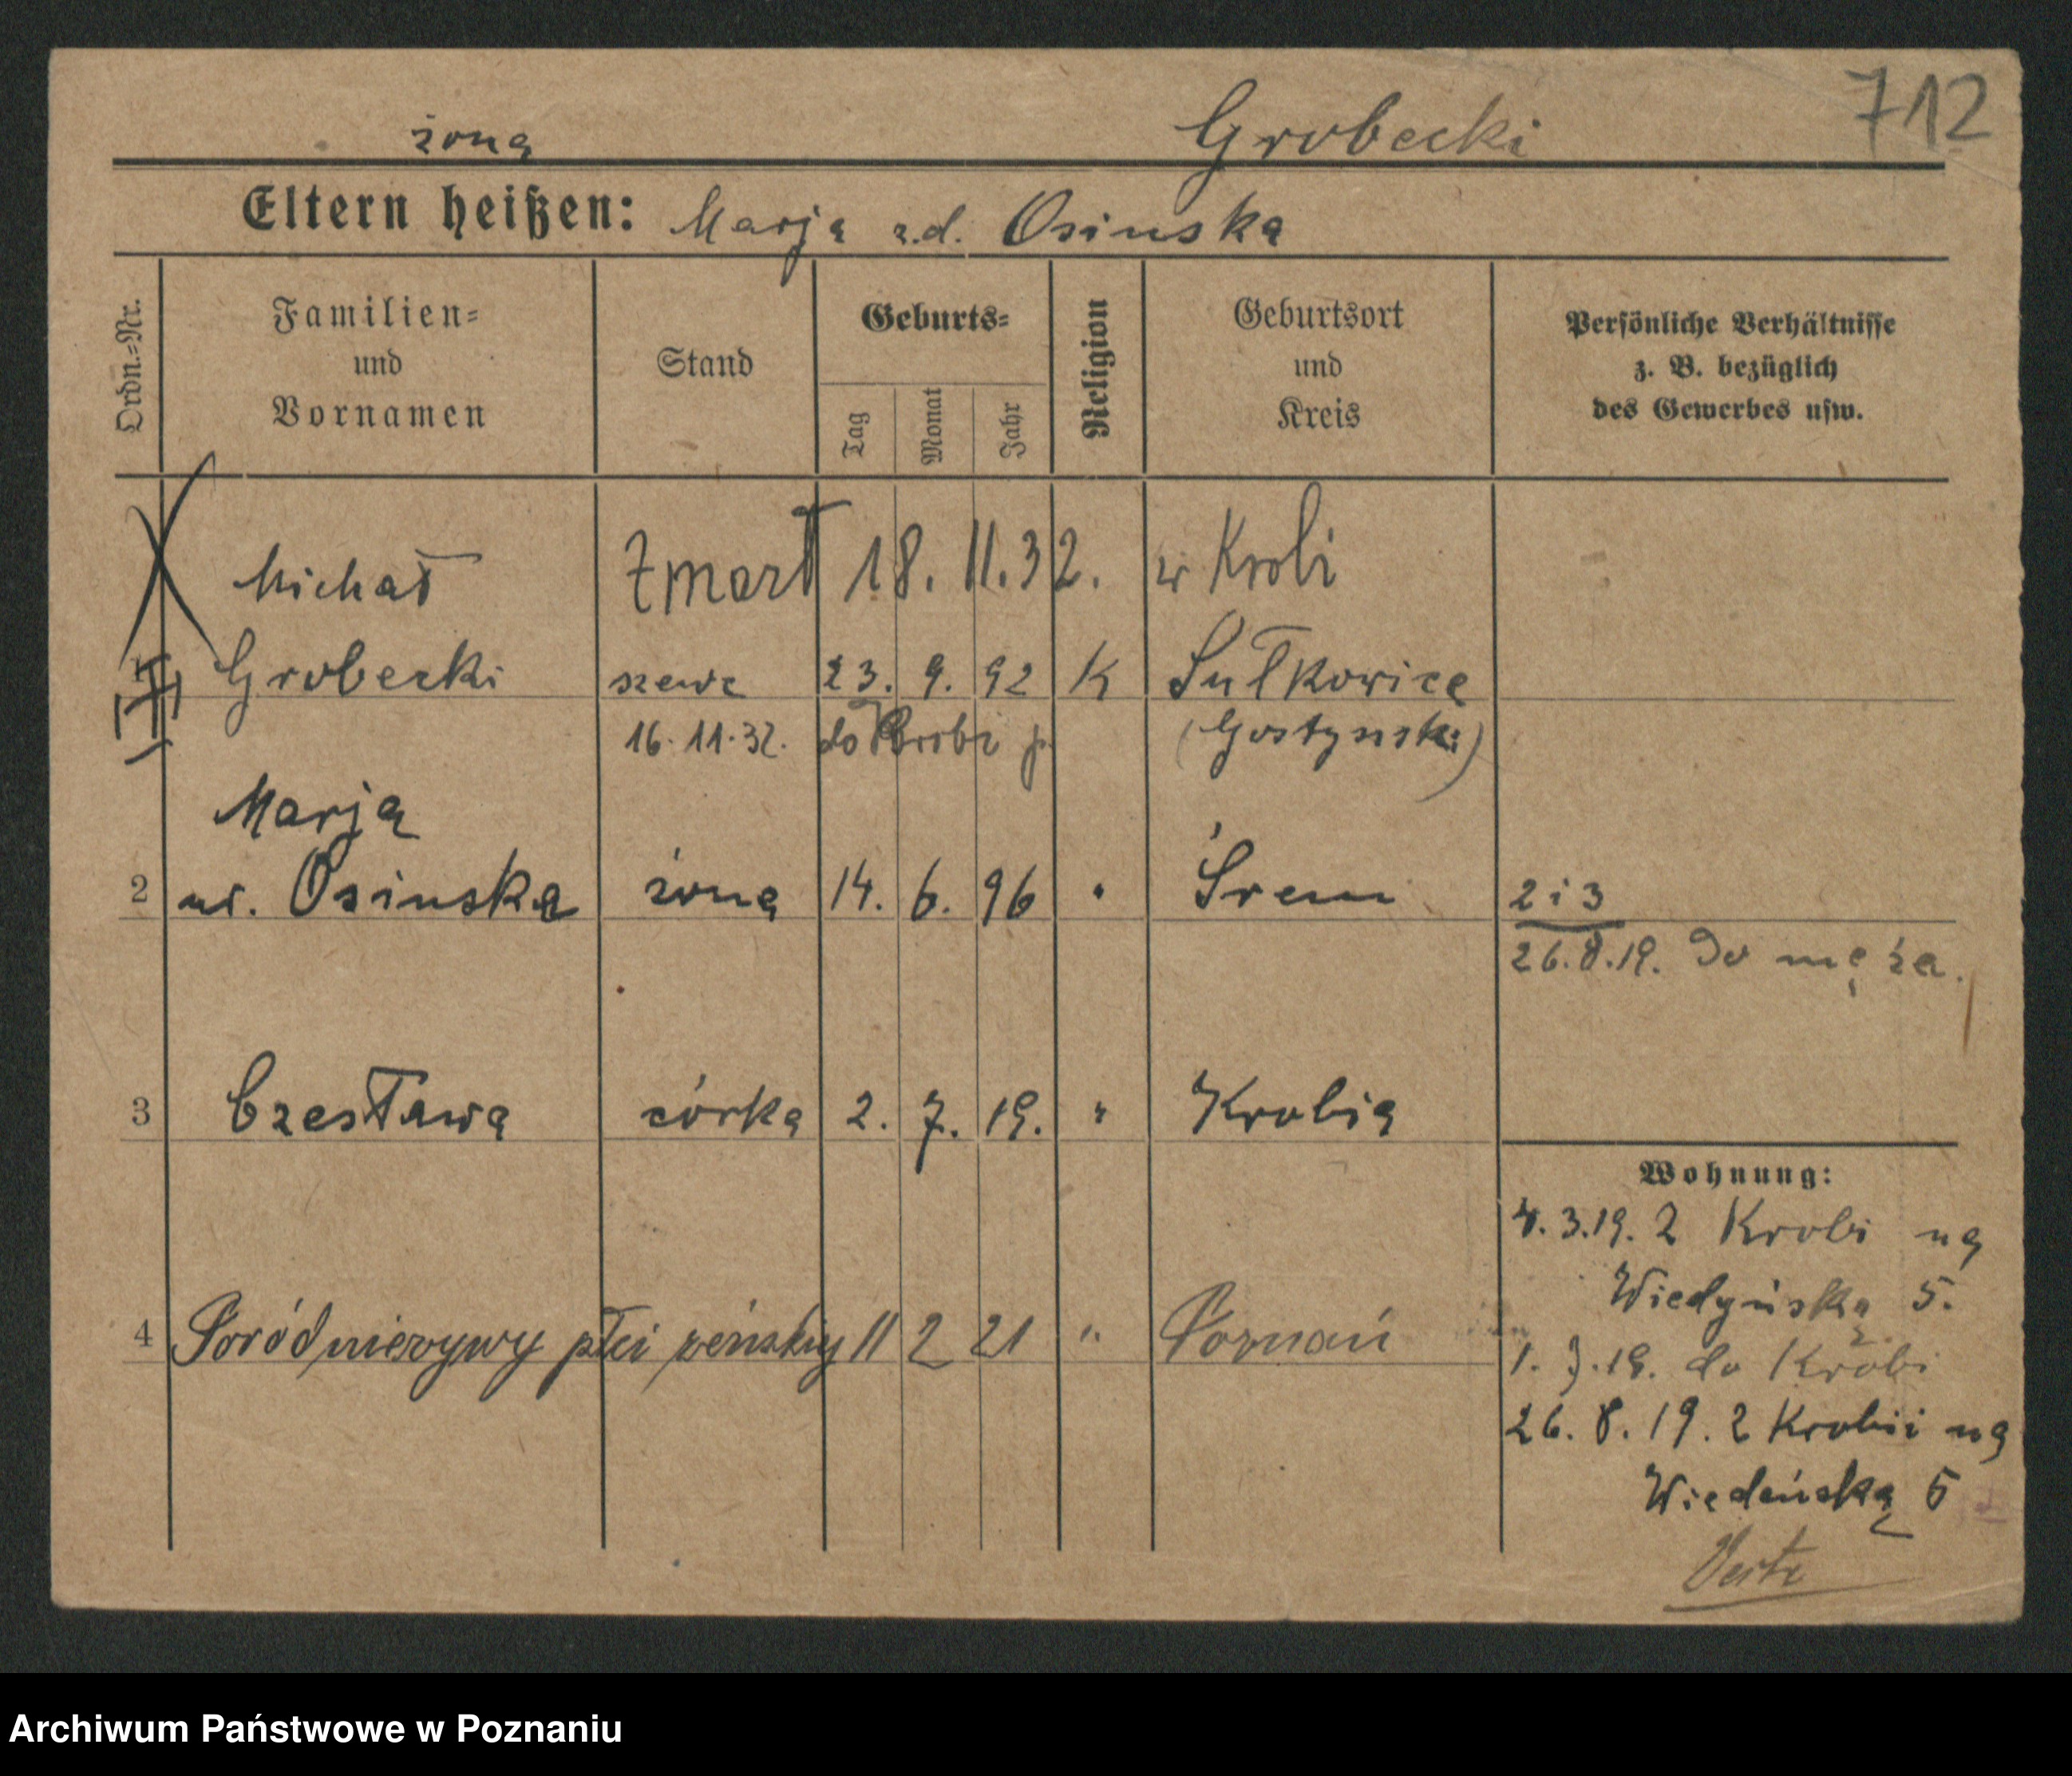 712
żona Grobecki
Eltern heißen: Marja z.d. Osinska
Ordn.=Nr.
Familien=
und
Vornamen
Stand
Geburts=
Tag
Monat
Jahr
Religion
Geburtsort
und
Kreis
Persönliche Verhältnisse
z. B. bezüglich
des Gewerbes usw.
Michał Zmarł 18. 11. 32. w Krobi
1 Grobecki szewc 23. 9. 92 K Sułkowice
16. 11. 32. do Krobi p. (Gostynski)
Marja
2 ur. Osinska żona 14. 6. 96 " Śrem 2 i 3
26. 8. 19. Do męża.
3 Czesława córka 2. 7. 19. " Krobia
Wohnung:
4. 3. 19. z Krobi na
Wiedyńska 5.
4 Poród nieżywy płci żeńskiej 11 2 21 " Poznań
1. 7. 19. do Krobi
26. 8. 19. z Krobii na
Wiedeńską 5
Archiwum Państwowe w Poznaniu